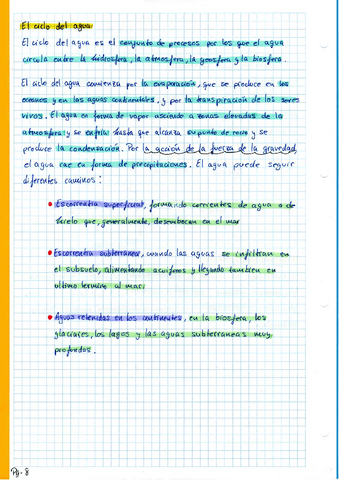 El ciclo del agua
El ciclo del agua es el conjunto de procesos por los que el agua
circula entre la hidrosfera, la atmosfera, la geosfera y la biosfera.
El ciclo del agua comienza por la evaporación, que se produce en los
oceanos y en las aguas continentales, y por la transpiración de los seres
vivos. El agua en forma de vapor asciende a zonas elevadas de la
atmosfera y se enfria hasta que alcanza su punto de rocio y se
produce la condensación. Por la acción de la fuerza de la gravedad,
el agua cae en forma de precipitaciones. El agua puede seguir
diferentes caminos:
• Escorrentia superficial, formando corrientes de agua o de
hielo que, generalmente, desembocan en el mar
• Escorrentia subterranea, cuando las aguas se infiltran en
el subsuelo, alimentando acuiferos y llegando tambien en
ultimo termino al mar.
• Aguas retenidas en los continentes, en la biosfera, los
glaciares, los lagos y las aguas subterraneas muy
profundas.
Pg. 8